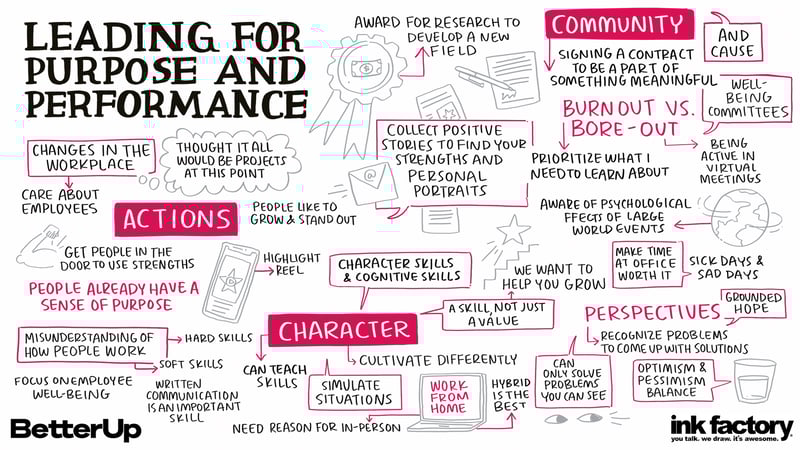 LEADING FOR
PURPOSE AND
PERFORMANCE
AWARD FOR RESEARCH TO
DEVELOP A NEW
FIELD
COMMUNITY
AND
CAUSE
SIGNING A CONTRACT
TO BE A PART OF
SOMETHING MEANINGFUL
BURNOUT VS.
BORE-OUT
WELL-
BEING
COMMITTEES
CHANGES IN THE
WORKPLACE
THOUGHT IT ALL
WOULD BE PROJECTS
AT THIS POINT
CARE ABOUT
EMPLOYEES
COLLECT POSITIVE
STORIES TO FIND YOUR
STRENGTHS AND
PERSONAL
PORTRAITS
PRIORITIZE WHAT I
NEED TO LEARN ABOUT
BEING
ACTIVE IN
VIRTUAL
MEETINGS
ACTIONS
PEOPLE LIKE TO
GROW & STAND OUT
AWARE OF PSYCHOLOGICAL
EFFECTS OF LARGE
WORLD EVENTS
GET PEOPLE IN THE
DOOR TO USE STRENGTHS
HIGHLIGHT
REEL
PEOPLE ALREADY HAVE A
SENSE OF PURPOSE
CHARACTER SKILLS
& COGNITIVE SKILLS
WE WANT TO
HELP YOU GROW
MAKE TIME
AT OFFICE
WORTH IT
SICK DAYS &
SAD DAYS
A SKILL, NOT JUST
A VALUE
CHARACTER
PERSPECTIVES
GROUNDED
HOPE
RECOGNIZE PROBLEMS
TO COME UP WITH SOLUTIONS
MISUNDERSTANDING OF
HOW PEOPLE WORK
HARD SKILLS
SOFT SKILLS
FOCUS ON EMPLOYEE
WELL-BEING
WRITTEN
COMMUNICATION
IS AN IMPORTANT
SKILL
CAN TEACH
SKILLS
CULTIVATE DIFFERENTLY
SIMULATE
SITUATIONS
WORK
FROM
HOME
HYBRID
IS THE
BEST
NEED REASON FOR IN-PERSON
CAN
ONLY SOLVE
PROBLEMS
YOU CAN SEE
OPTIMISM &
PESSIMISM
BALANCE
BetterUp
ink factory
you talk. we draw. it's awesome.